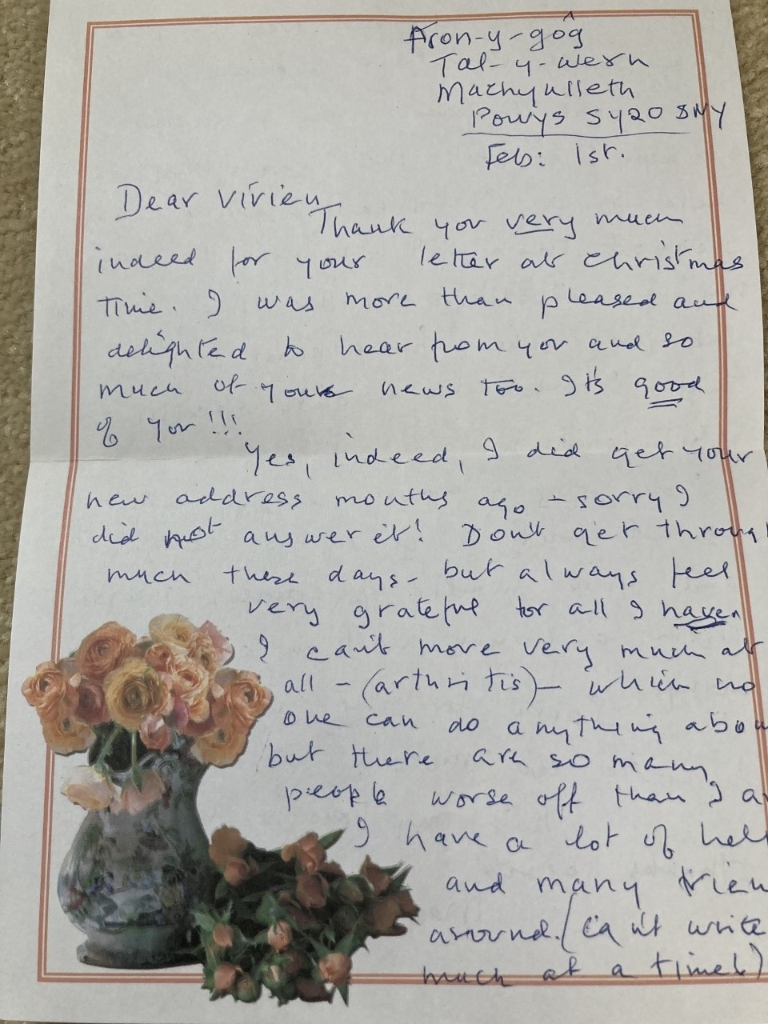 Fron-y-gôg
Tal-y-wern
Machynlleth
Powys SY20 8NY
Feb: 1st.
Dear Vivien,
Thank you very much
indeed for your letter at Christmas
Time. I was more than pleased and
delighted to hear from you and so
much of your news too. It's good
of you!!!
Yes, indeed, I did get your
new address months ago - sorry I
did not answer it! Don't get throu
much these days - but always feel
very grateful for all I have.
I can't move very much at
all - (arthritis) - which no
one can do anything abou
but there are so many
people worse off than I a
I have a lot of hel
and many frien
around. (Can't write
much at a time!)